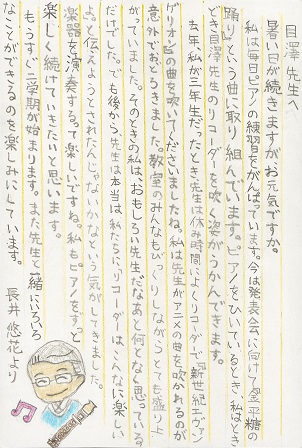 目澤先生へ
暑い日が続きますがお元気ですか。
私は毎日ピアノの練習をがんばっています。今は発表会に向けて『金平糖の
踊り』という曲に取り組んでいます。ピアノをひいているとき、私はとき
どき目澤先生のリコーダーを吹く姿がうかんできます。
去年、私が二年生だったとき先生は休み時間によくリコーダーで『新世紀エヴァン
ゲリオン』の曲を吹いてくださいましたね。私は先生がアニメの曲を吹かれるのが
意外でおどろきました。教室のみんなもびっくりしながらとても盛り上
がっていました。そのときの私は、おもしろい先生だなあと何となく思っている
だけでした。でも後から、先生は本当は私たちに、リコーダーはこんなに楽しい
よ。と伝えようとされたんじゃないかなという気がしてきました。
楽器を演奏するって楽しいですね。私もピアノをずっと
楽しく続けていきたいと思います。
もうすぐ二学期が始まります。また先生と一緒にいろいろ
なことができるのを楽しみにしています。
長井悠花より